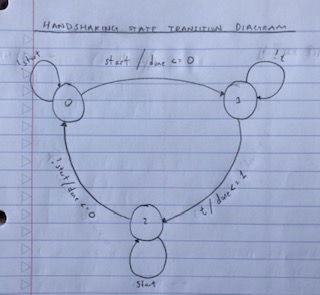 HANDSHAKING STATE TRANSITION DIAGRAM
!start
start / done <= 0
!t
0
1
!start / done <= 0
t / done <= 1
2
start